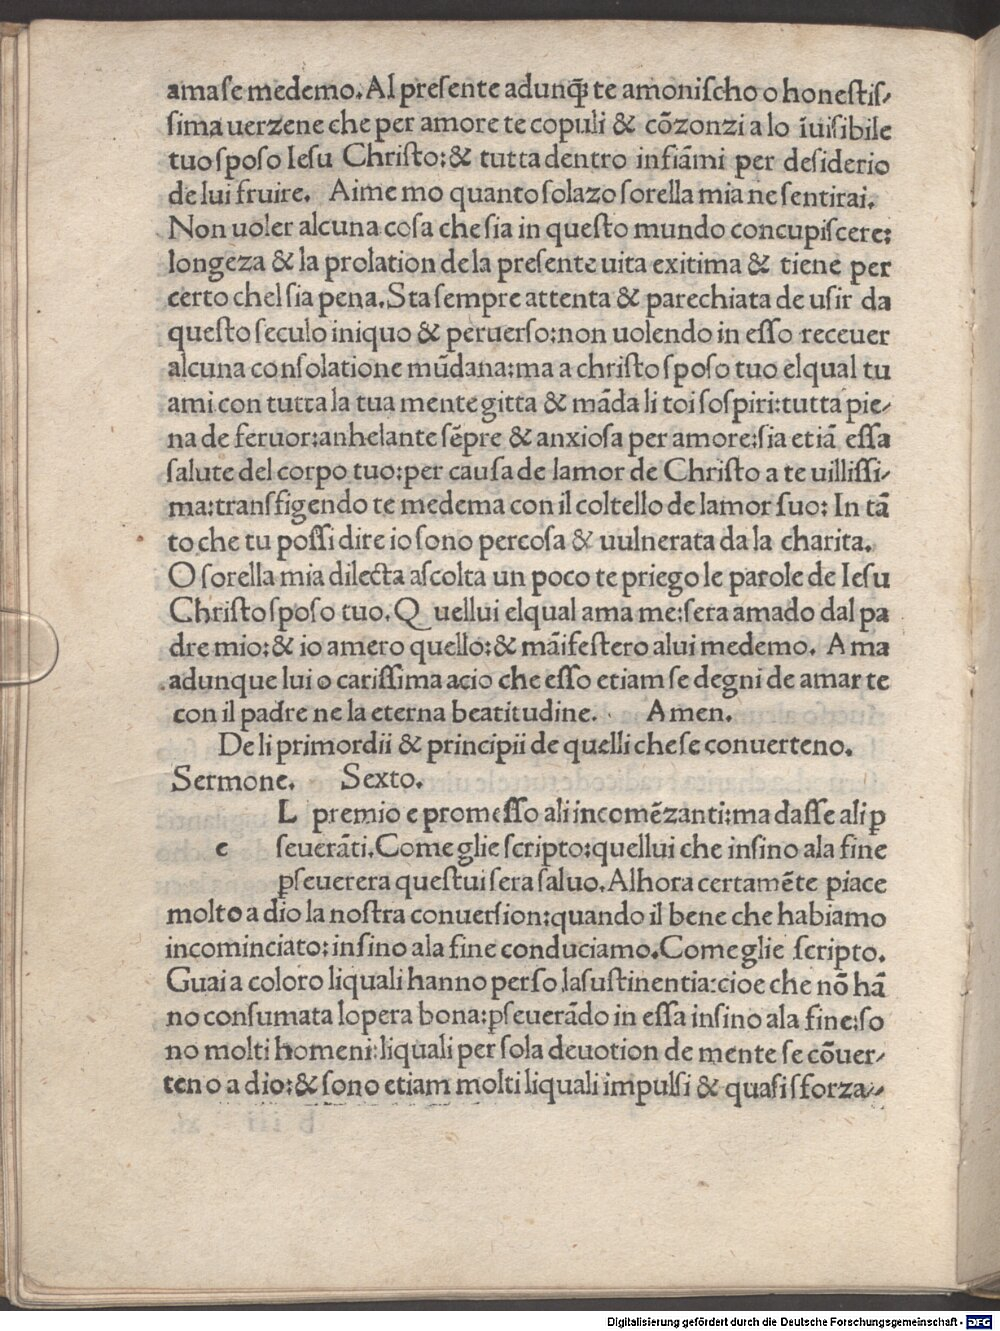 ama se medemo. Al presente adunq̃ te amonischo o honestiſ-
ſima uerzene che per amore te copuli & cõzonzi a lo ĩuiſibile
tuo ſpoſo Ieſu Chriſto: & tutta dentro infiãmi per deſiderio
de lui fruire. Aime mo quanto ſolazo ſorella mia ne ſentirai.
Non uoler alcuna coſa che ſia in queſto mundo concupiſcere:
longeza & la prolation de la preſente uita exitima & tiene per
certo chel ſia pena. Sta ſempre attenta & parechiata de uſir da
queſto ſeculo iniquo & peruerſo: non uolendo in eſſo receuer
alcuna conſolatione mũdana: ma a chriſto ſpoſo tuo elqual tu
ami con tutta la tua mente gitta & mãda li toi ſoſpiri: tutta pie-
na de feruor: anhelante ſẽpre & anxioſa per amore: ſia etiã eſſa
ſalute del corpo tuo: per cauſa de lamor de Chriſto a te uilliſſi-
ma: tranſfigendo te medema con il coltello de lamor ſuo: In tã
to che tu poſſi dire io ſono percoſa & uulnerata da la charita.
O ſorella mia dilecta aſcolta un poco te priego le parole de Ieſu
Chriſto ſpoſo tuo. Quellui elqual ama me: ſera amado dal pa
dre mio: & io amero quello: & mãifeſtero a lui medemo. Ama
adunque lui o cariſſima acio che eſſo etiam ſe degni de amar te
con il padre ne la eterna beatitudine. Amen.
De li primordii & principii de quelli che ſe conuerteno.
Sermone. Sexto.
L premio e promeſſo ali incomẽzanti: ma daſſe ali ꝑ
e ſeuerãti. Come glie ſcripto: quellui che inſino ala fine
ꝑſeuerera queſtui ſera ſaluo. Alhora certamẽte piace
molto a dio la noſtra conuerſion: quando il bene che habiamo
incominciato: inſino ala fine conduciamo. Come glie ſcripto.
Guai a coloro liquali hanno perſo la ſuſtinentia: cioe che nõ hã
no conſumata lopera bona: ꝑſeuerãdo in eſſa inſino ala fine: ſo
no molti homeni: liquali per ſola deuotion de mente ſe cõuer-
teno a dio: & ſono etiam molti liquali impulſi & quaſi sforza-
Digitalisierung gefördert durch die Deutsche Forschungsgemeinschaft - DFG